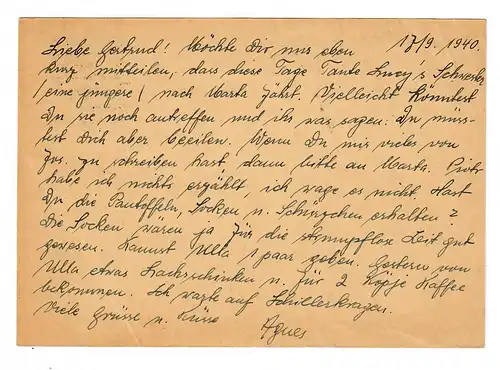 17/9. 1940.
Liebe Gertrud! Möchte Dir nur eben
kurz mitteilen, dass diese Tage Tante Lucy's Schwester
/eine jüngere/ nach Marta fährt. Vielleicht könntest
Du sie noch antreffen und ihr was sagen. Du müss-
test Dich aber beeilen. Wenn Du mir vieles von
Jos. zu schreiben hast dann bitte an Marta.
habe ich nichts erzählt, ich wage es nicht. Hast
Du die Pantoffeln, Socken u. Schürzchen erhalten?
Die Socken wären ja für die strumpflose Zeit gut
gewesen. Kannst Ulla 1 paar geben. Gestern von
Ulla etwas Lachsschinken u. für 2 Kaffee
bekommen. Ich warte auf Schillerkragen.
Viele Grüsse u. Küsse
Agnes